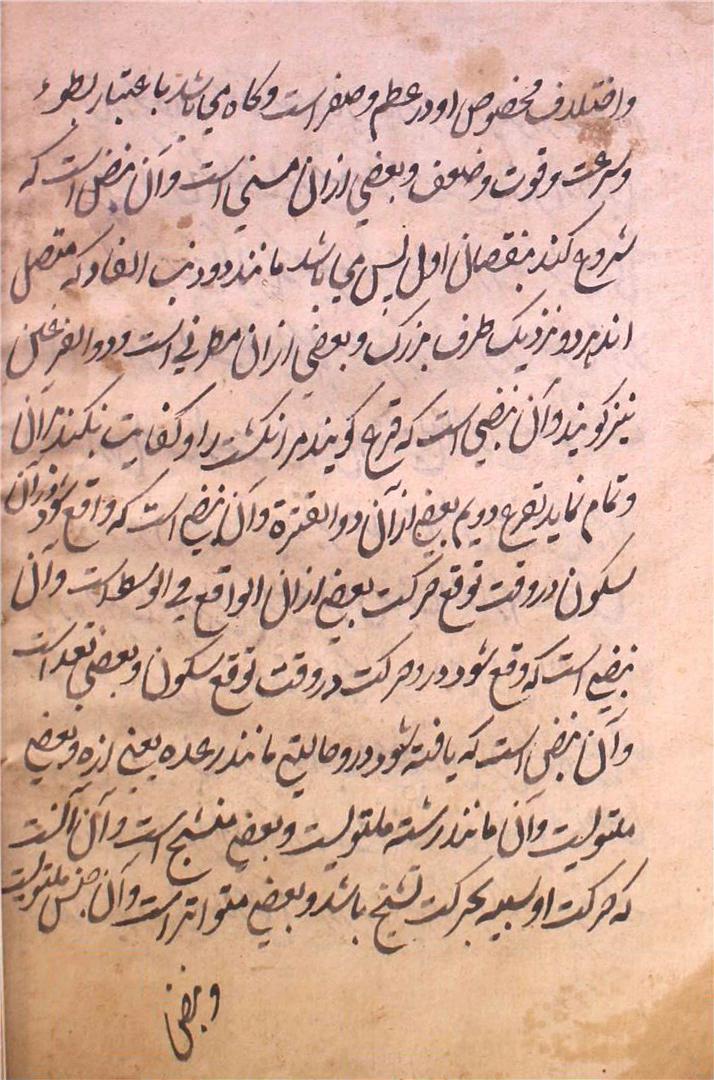 واختلاف مخصوص او در عظم وصغر است وکاه می باشد با عتبار بطوء
وسرعت وقوت وضعف وبعضی ازان مسنی است وآن نبض است که
شروع کند بنقصان اول پس می باشد مانند دو ذنب الفار که متصل
اند هر دو نزدیک طرف بزرک وبعضی ازان مطرقی است وذو القرعتین
نیز کویند وآن نبضی است که قرع کویند مر انکشت را وکفایت نکند بران
وتمام نماید بقرع دویم بعضی از آن ذو الفترة وآن نبضی است که واقع شود دران
سکون در وقت توقع حرکت بعضی ازان الواقع فی الوسط است وآن
نبضی است که وقع شود درو حرکت در وقت توقع سکون وبعضی است
وآن نبض است که یافته شود درو حالیتی مانند رعده یعنی لرزه وبعضی
ملتویست وآن مانند رشته ملتویست وبعضی متشنج است وآن آنست
که حرکت او شبیه بحرکت تشنج باشد وبعضی متواتر است وآن جنس ملتویست
وبعضی